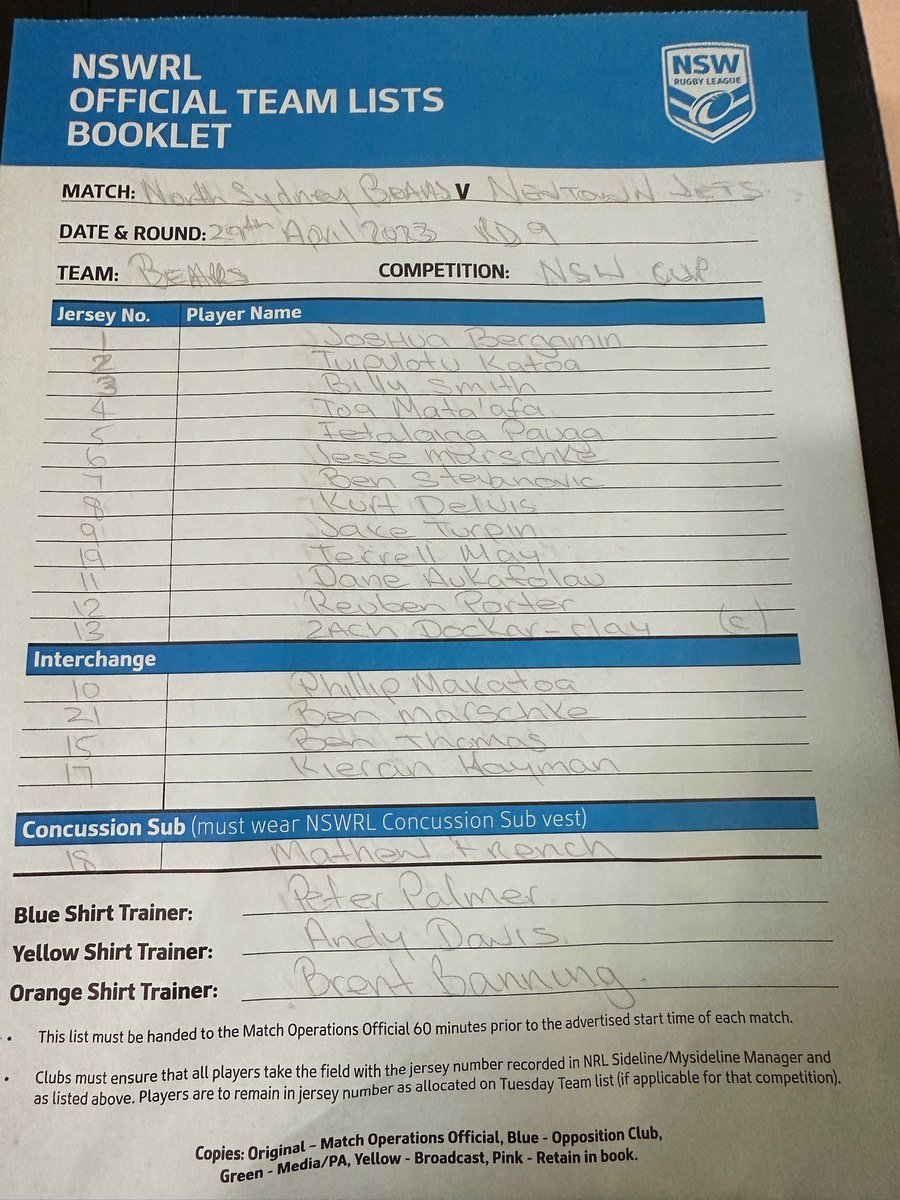 NSWRL
OFFICIAL TEAM LISTS
BOOKLET
NSW
RUGBY LEAGUE
MATCH: North Sydney BEARS V NEWTOWN JETS
DATE & ROUND: 29th April 2023 RD 9
TEAM: BEARS COMPETITION: NSW CUP
Jersey No. Player Name
1 Joshua Bergamin
2 Tuipulotu Katoa
3 Billy Smith
4 Toa Mata'afa
5 Fetalaiga Pauga
6 Jesse Marschke
7 Ben Stevanovic
8 Kurt Deluis
9 Jake Turpin
19 Terrell May
11 Dane Aukafolau
12 Reuben Porter
13 Zach Dockar-clay (c)
Interchange
10 Phillip Makatoa
21 Ben Marschke
15 Ben Thomas
17 Kieran Hayman
Concussion Sub (must wear NSWRL Concussion Sub vest)
18 Mathew French
Blue Shirt Trainer: Peter Palmer
Yellow Shirt Trainer: Andy Davis
Orange Shirt Trainer: Brent Banning.
• This list must be handed to the Match Operations Official 60 minutes prior to the advertised start time of each match.
• Clubs must ensure that all players take the field with the jersey number recorded in NRL Sideline/Mysideline Manager and
as listed above. Players are to remain in jersey number as allocated on Tuesday Team list (if applicable for that competition).
Copies: Original – Match Operations Official, Blue - Opposition Club,
Green - Media/PA, Yellow - Broadcast, Pink - Retain in book.